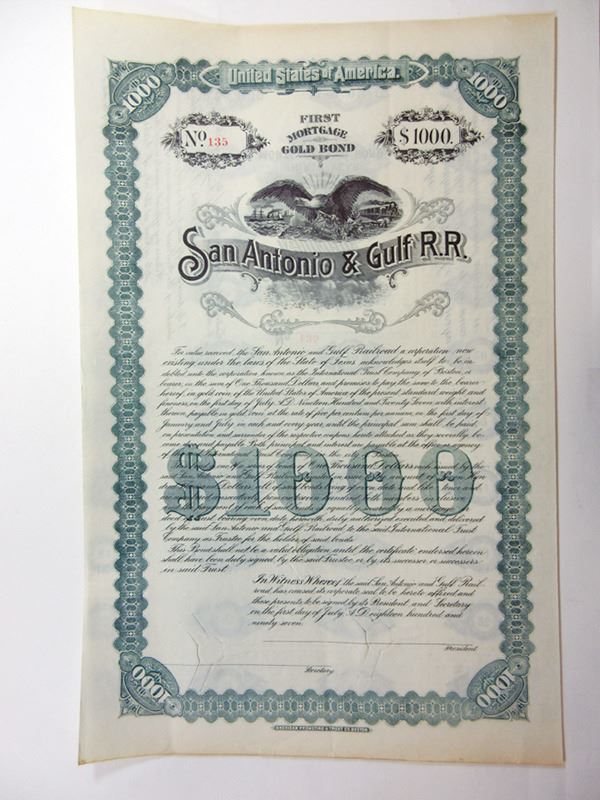 United States of America.
1000 1000
No. 135 FIRST MORTGAGE GOLD BOND $1000.
San Antonio & Gulf R.R.
135
For value received the San Antonio and Gulf Railroad a corporation now
existing under the laws of the State of Texas acknowledges itself to be in-
debted unto the corporation known as the International Trust Company of Boston, or
bearer, in the sum of One Thousand Dollars and promises to pay the same to the bearer
hereof, in gold coin of the United States of America of the present standard weight and
fineness on the first day of July A.D. Nineteen Hundred and Twenty Seven with interest
thereon payable in gold coin at the rate of five per centum per annum, on the first day of
January and July in each and every year, until the principal sum shall be paid
on presentation and surrender of the respective coupons hereto attached as they severally be-
come payable. Both principal and interest are payable at the office or agency
of International Trust Company in the city of Boston
of a series of bonds of One Thousand Dollars each issued by the
San Antonio and Gulf Railroad
$1000
Dollars
and bearing even date herewith, duly authorized executed and delivered
by the said San Antonio and Gulf Railroad to the said International Trust
Company as Trustee for the holders of said bonds.
This Bond shall not be a valid obligation until the certificate endorsed hereon
shall have been duly signed by the said Trustee or by its successor or successors
in said Trust.
In Witness Whereof the said San Antonio and Gulf Rail-
road has caused its corporate seal to be hereto affixed and
these presents to be signed by its President and Secretary
on the first day of July A.D. eighteen hundred and
ninety seven.
President
Secretary
1000 1000
AMERICAN PRINTING & TRUST CO. BOSTON